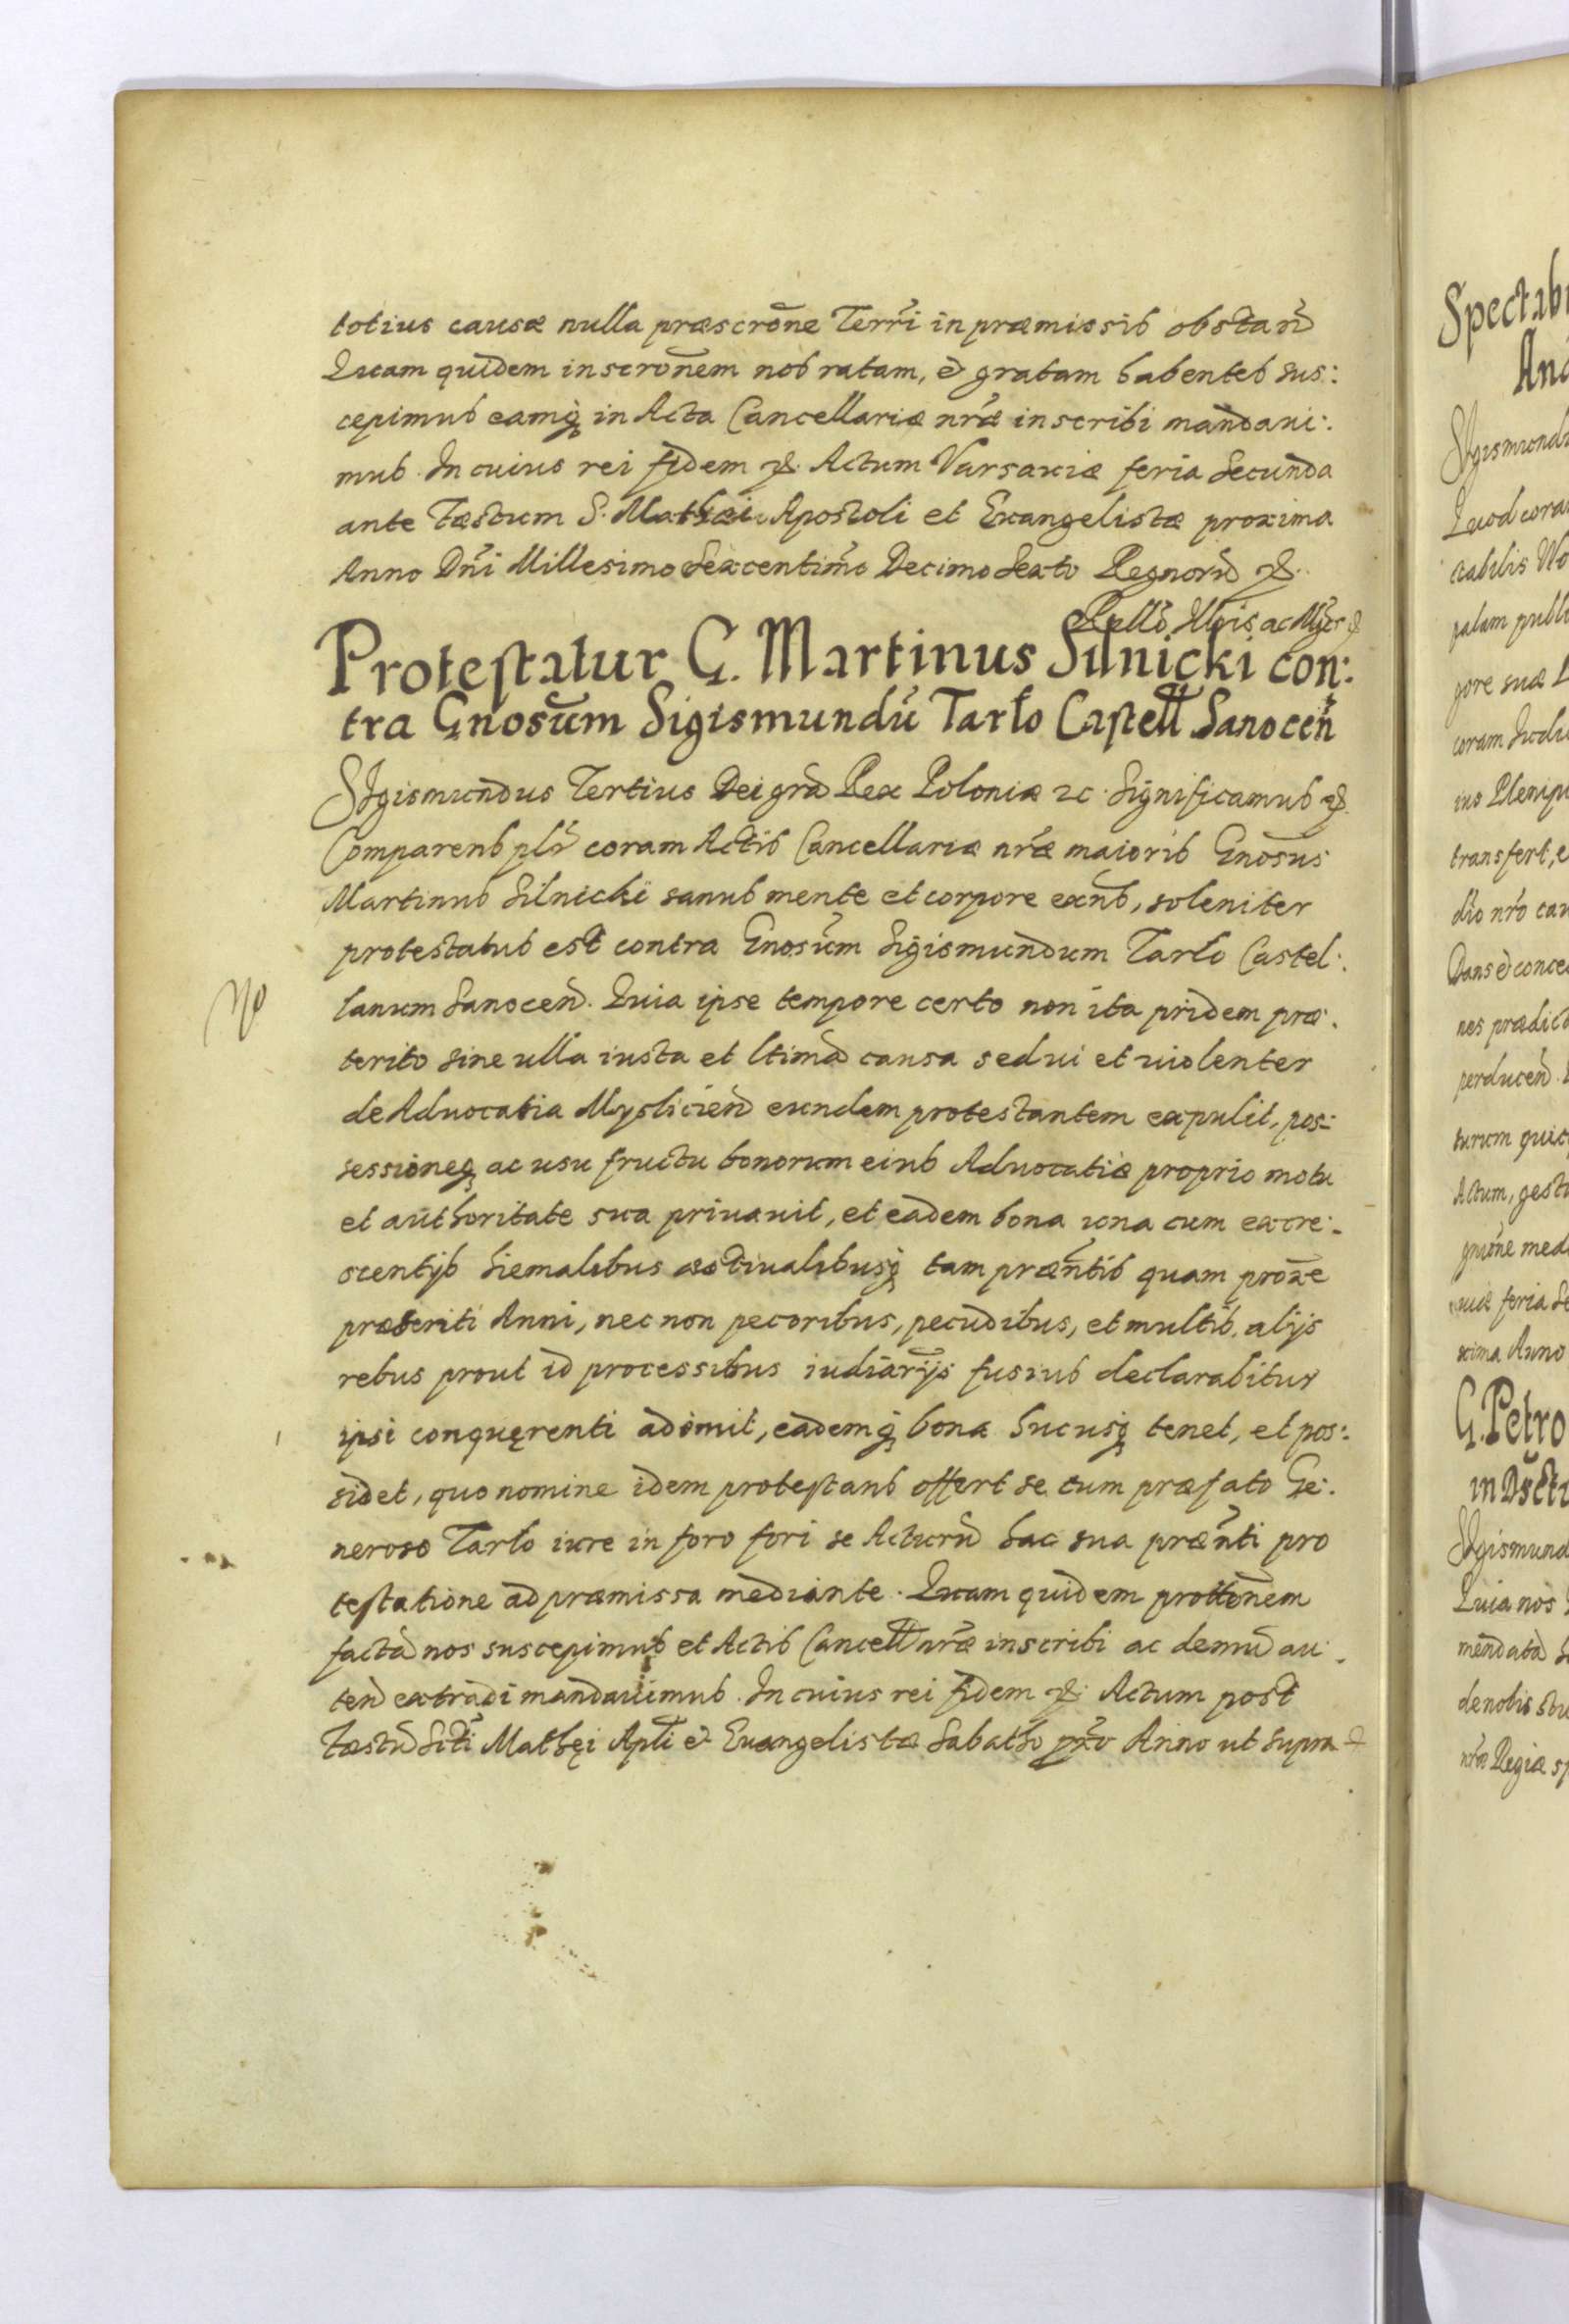 totius causæ nulla præscrõne Terrĩ in præmissis obstañ
Quam quidem inscrõnem nos ratam, et gratam habentes sus:
cepimus eamq́ in Acta Cancellariæ nrãe inscribi mandaui:
mus. In cuius rei fidem etc. Actum Varsauiæ feria Secunda
ante Fæstum S. Mathæi Apostoli et Euangelistæ proxima
Anno Dñi Millesimo Sexcentimõ Decimo Sexto Regnorũ etc.
Protestatur G. Martinus Silnicki con:
tra Gnosum̃ Sigismundũ Tarło Castell Sanoceñ
SIgismundus Tertius Dei grã Rex Poloniæ etc. Significamus etc.
Comparens plr̃ coram Actis Cancellariæ nrãe maioris Gnõsus
Martinus Silnicki sanus mente et corpore exñs, soleniter
protestatus est contra Gnosũm Sigismundum Tarło Castel:
lanum Sanoceñ. Quia ipse tempore certo non ita pridem præ:
terito sine ulla iusta et ltimã causa sed ui et uiolenter
de Aduocatia Myslicieñ eundem protestantem expulit, pos:
sessioneq́ ac usu fructu bonorum eius Aduocatiæ proprio motu
et authoritate sua priuauit, et eadem bona una cum excre:
scentijs hiemalibus æstiualibusq́ tam præñtis quam proxẽ
præteriti Anni, nec non pecoribus, pecudibus, et multis, alijs
rebus prout id processibus iudiãrijs fusius declarabitur
ipsi conquęrenti adimit, eademq́ bona hucusq́ tenet, et pos:
sidet, quo nomine idem protestans offert se cum præfato Ge:
neroso Tarło iure in foro fori se Acturũ hac sua præñti pro
testatione ad præmissa mediante. Quam quidem prottõnem
factã nos suscepimus et Actis Cancell nrãe inscribi ac demũ au:
teñ extradi mandauimus. In cuius rei fidem etc. Actum post
Fæstũ Sĩti Mathęi Apłi et Euangelistæ Sabatho prõ Anno ut supra